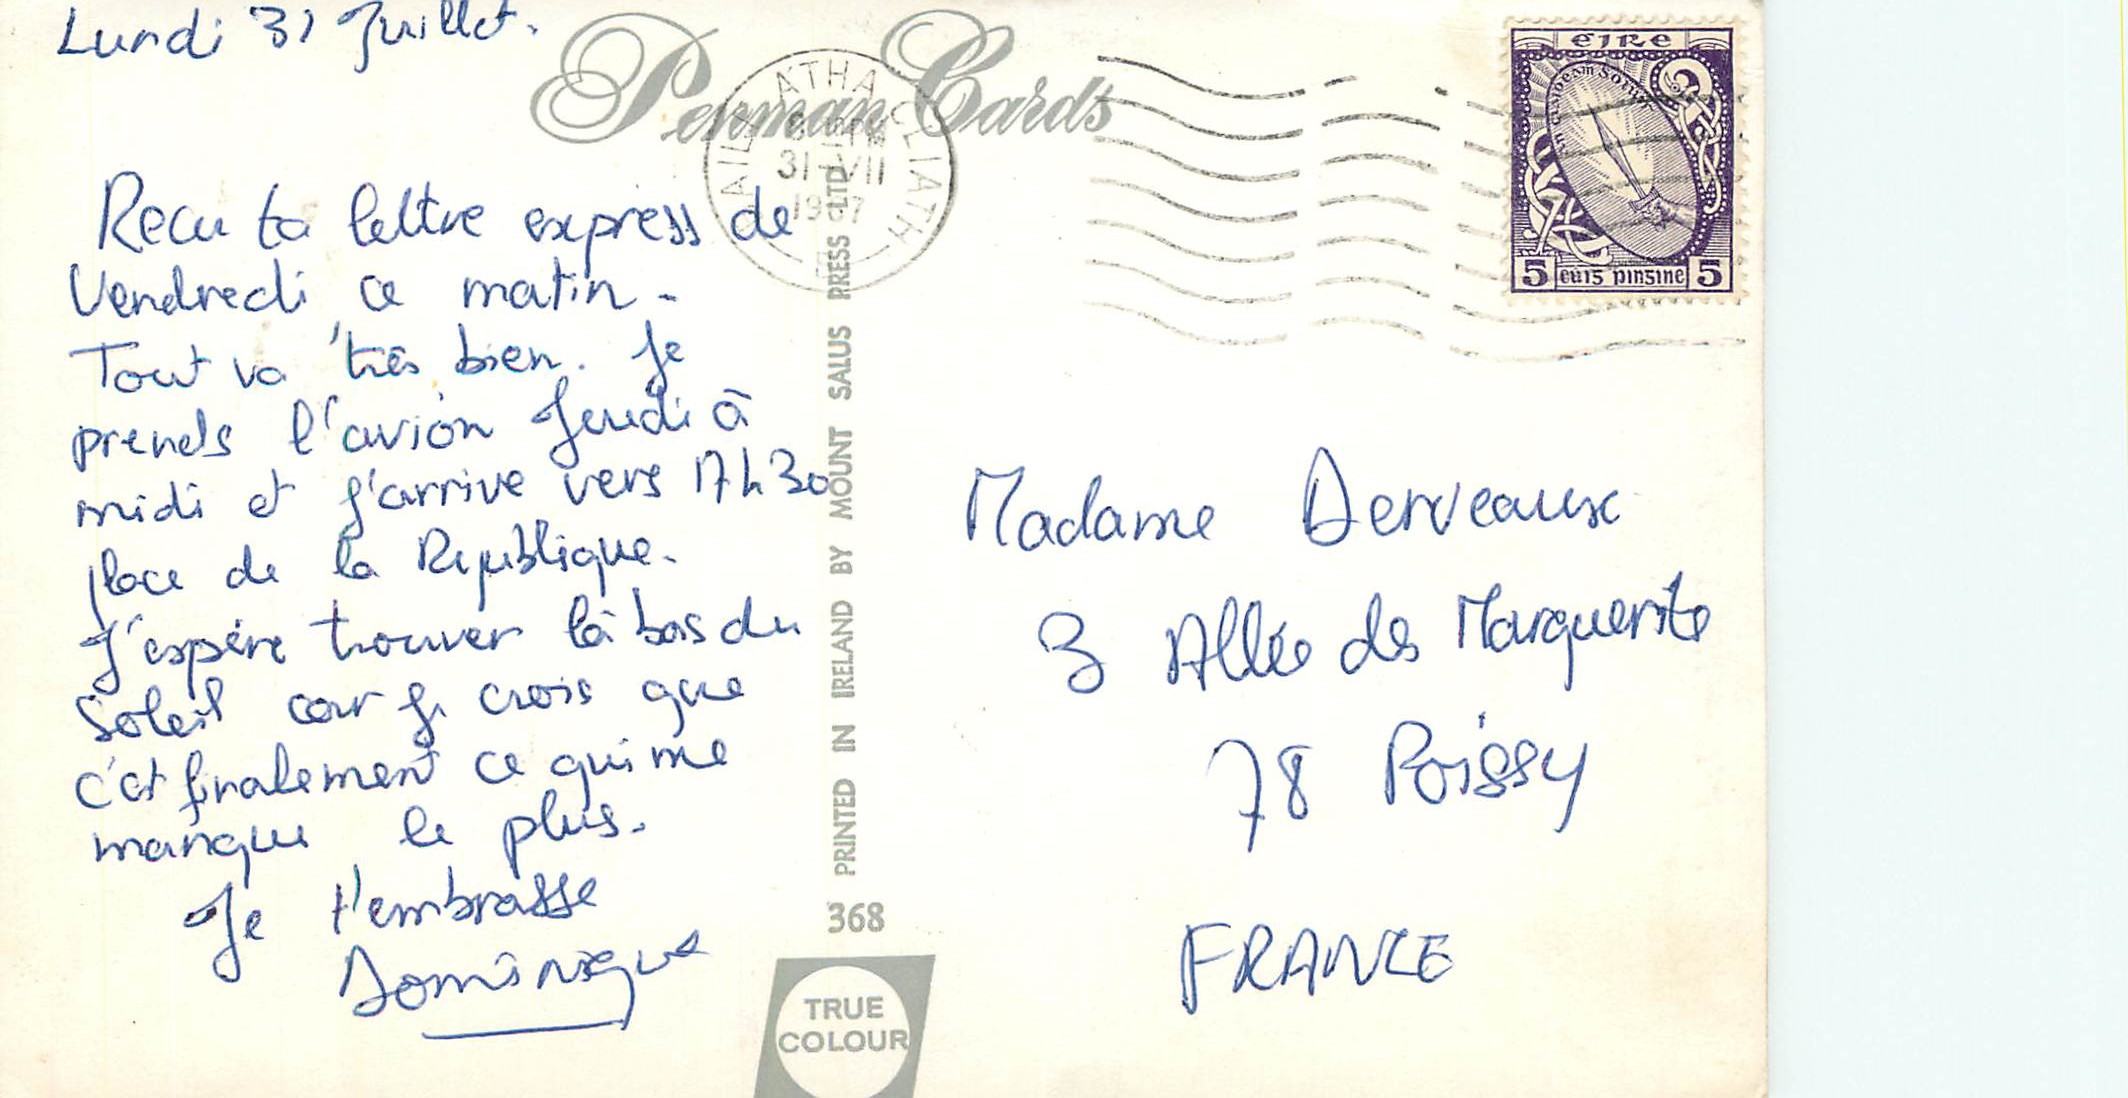 Lundi 31 Juillet.
Recu ta lettre express de
Vendredi ce matin -
Tout va très bien. Je
prends l'avion Jeudi à
midi et j'arrive vers 17h30
place de la République.
J'espère trouver là bas du
Soleil car je crois que
c'est finalement ce qui me
manque le plus.
Je t'embrasse
Dominique
Penman Cards
BAILE ATHA CLIATH
31 VII
1967
PRINTED IN IRELAND BY MOUNT SALUS PRESS LTD.
368
TRUE
COLOUR
éire
an claideam soluis
5 cúig pingine 5
Madame Derveaux
3 Allée des Marguerites
78 Poissy
FRANCE